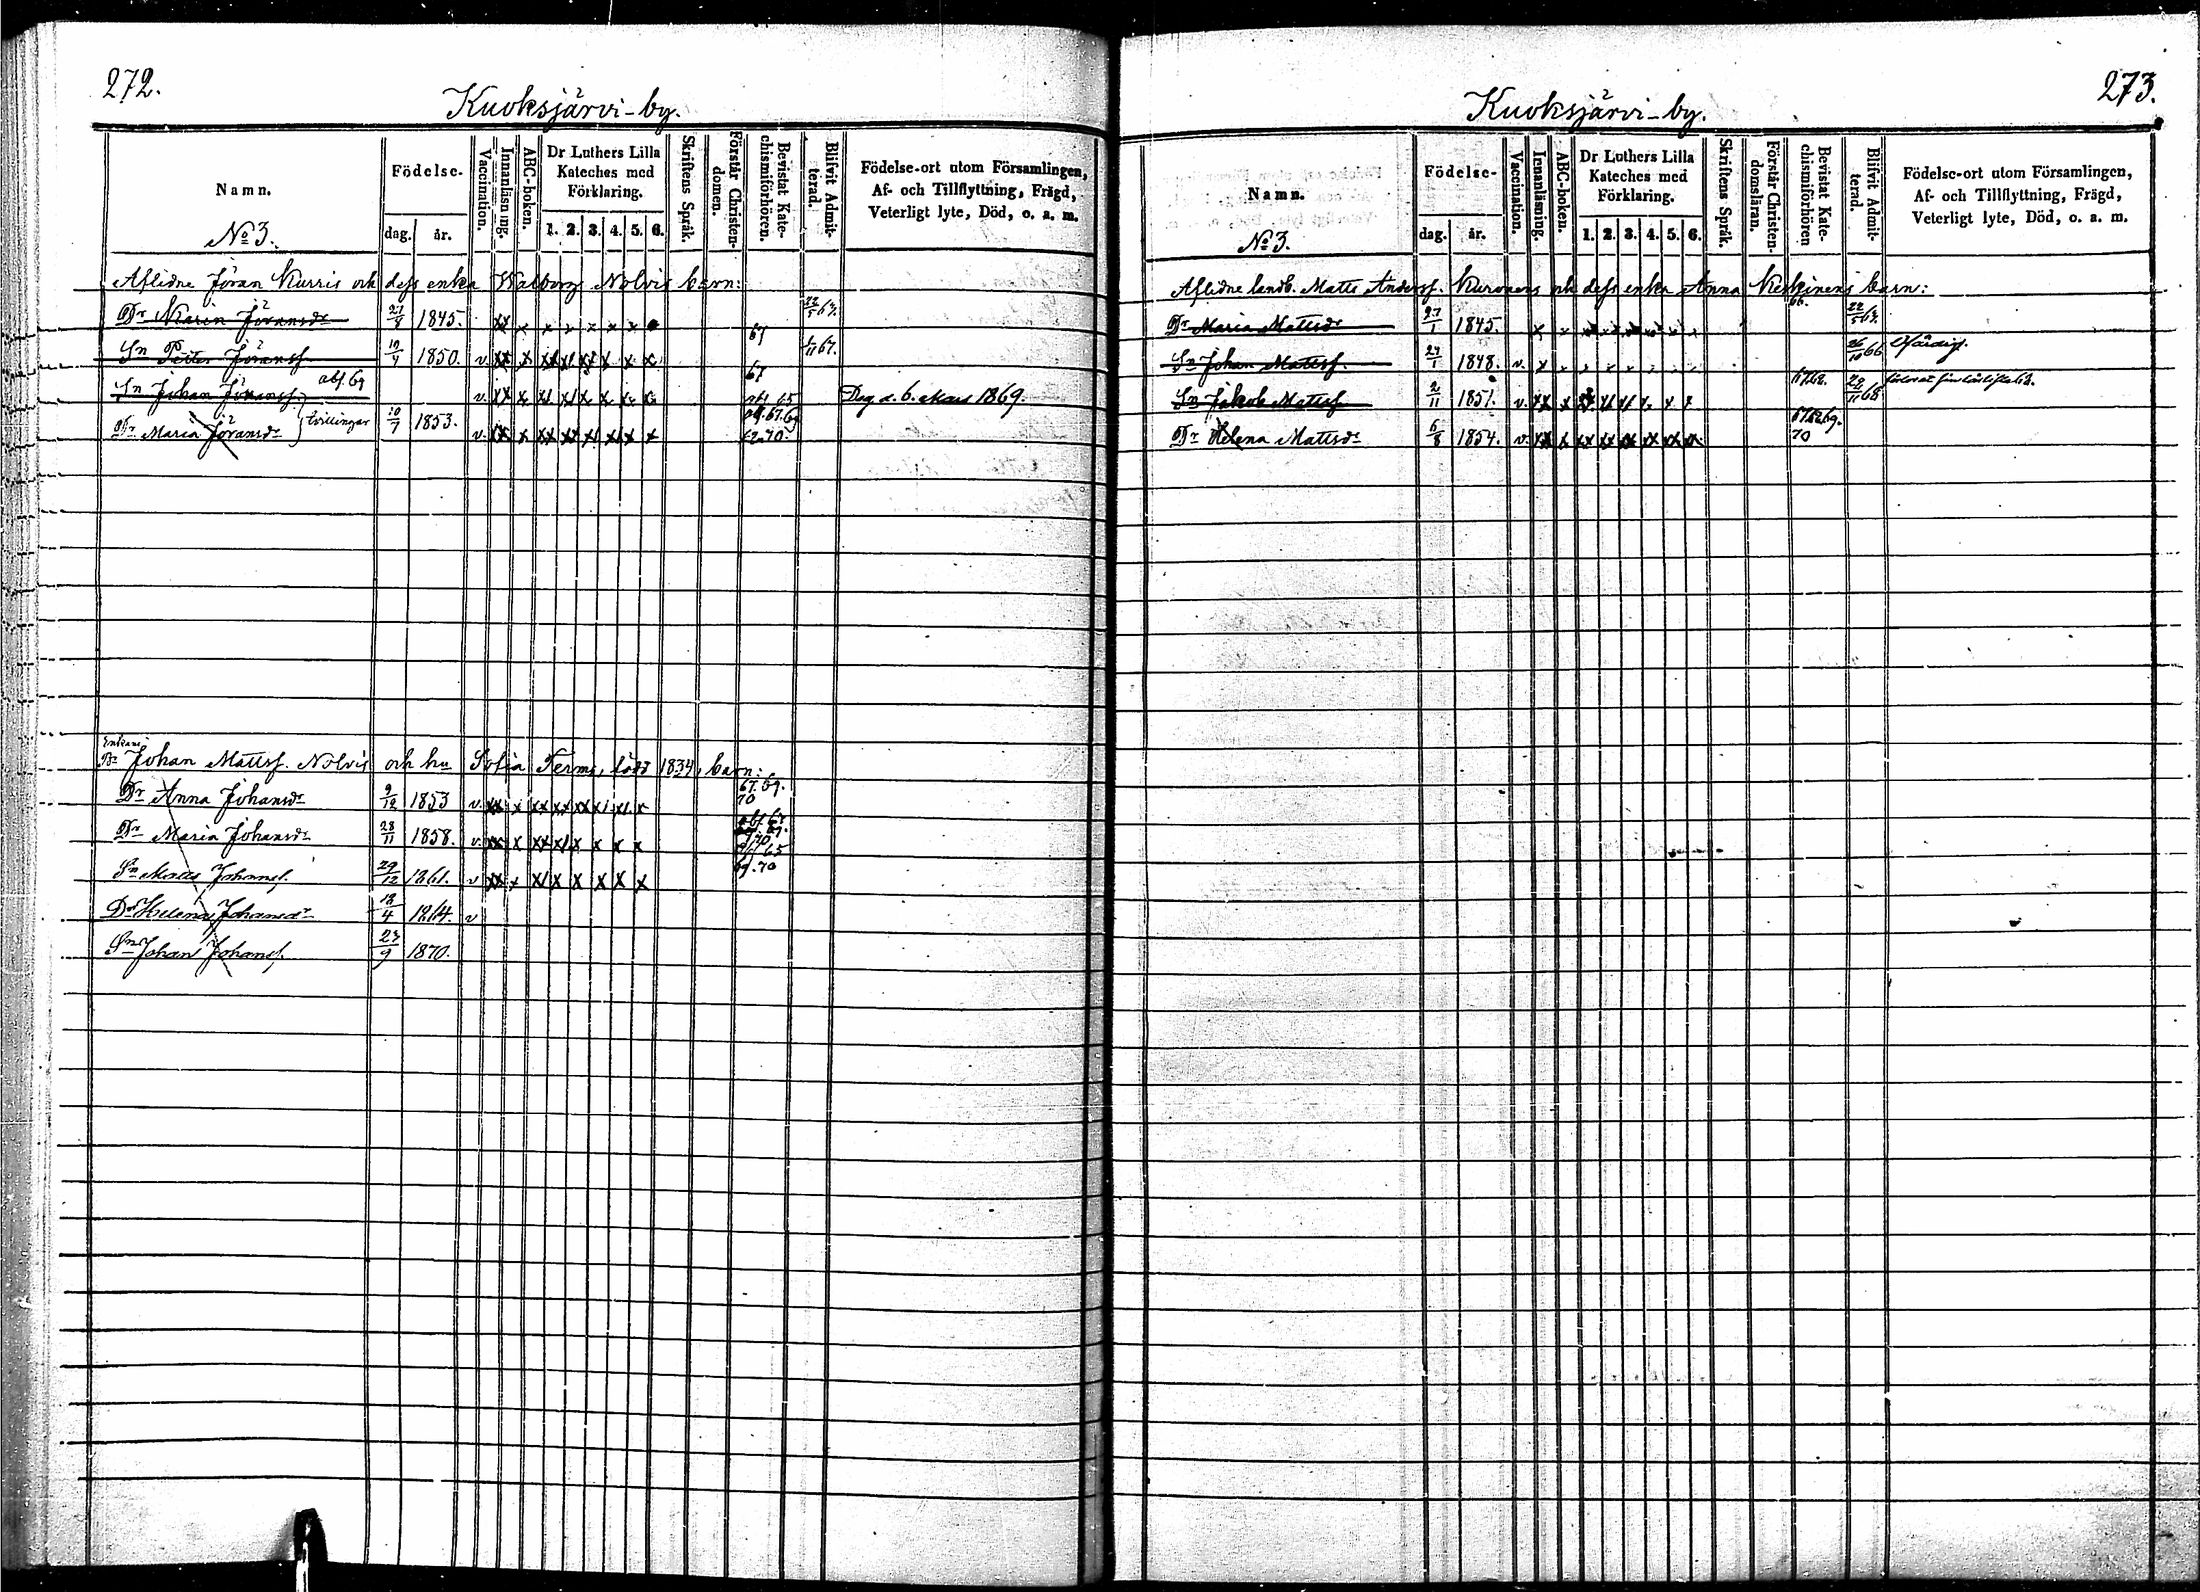 272.
Kuoksjärvi-by.
Namn.
No 3.
Födelse-
dag. år.
Vaccination.
Innanläsning.
ABC-boken.
Dr Luthers Lilla Kateches med Förklaring.
1. 2. 3. 4. 5. 6.
Skriftens Språk.
Förstår Christendomen.
Bevistat Katechismiförhören.
Blifvit Admitterad.
Födelse-ort utom Församlingen, Af- och Tillflyttning, Frägd, Veterligt lyte, Död, o. a. m.
Aflidne Jöran Kurris och dess enka Walborg Nolvis barn:
Dr Karin Jöransdr 1845. x x x x x x x 22/5 63.
Sn Peter Jöranss. 1850. v. xx x xx x x x x x 67
Sn Johan Jöranss. abs. 69 v. xx x x x x x x x 67 Dog d. 6. Mars 1869.
Dr Maria Jöransdr tvillingar 10/7 1853. v. xx x xx xx x x x x 70.
Enkans
Br Johan Matts. Nolvis och hu Sofia Termi, född 1834, barn:
Dr Anna Johansdr 9/12 1853 v. xx x xx xx xx x x x 67. 69. 70
Dr Maria Johansdr 28/11 1858. v. xx x xx x x x x x
Sn Matts Johanss. 29/12 1861. v xx x x x x x x x 69. 70
Dr Helena Johansdr 18/4 1864. v
Sn Johan Johanss. 27/9 1870.
273.
Kuoksjärvi-by.
Namn.
No 3.
Födelse-
dag. år.
Vaccination.
Innanläsning.
ABC-boken.
Dr Luthers Lilla Kateches med Förklaring.
1. 2. 3. 4. 5. 6.
Skriftens Språk.
Förstår Christendomsläran.
Bevistat Katechismiförhören
Blifvit Admitterad.
Födelse-ort utom Församlingen, Af- och Tillflyttning, Frägd, Veterligt lyte, Död, o. a. m.
Aflidne landb. Matts Anderss. Kurvaens och dess enka Anna Keskinens barn:
Dr Maria Mattsdr 27/1 1845. x x x x x x x x 66. 22/5 63.
Sn Johan Mattss. 1848. v. x x x x x x x 26/10 66 Ofärdig.
Sn Jakob Mattss. 2/11 1851. v. xx x x x x x x x 67.68. 68
Dr Helena Mattsdr 6/8 1854. v. xx x xx xx xx xx xx x 67.68.69. 70